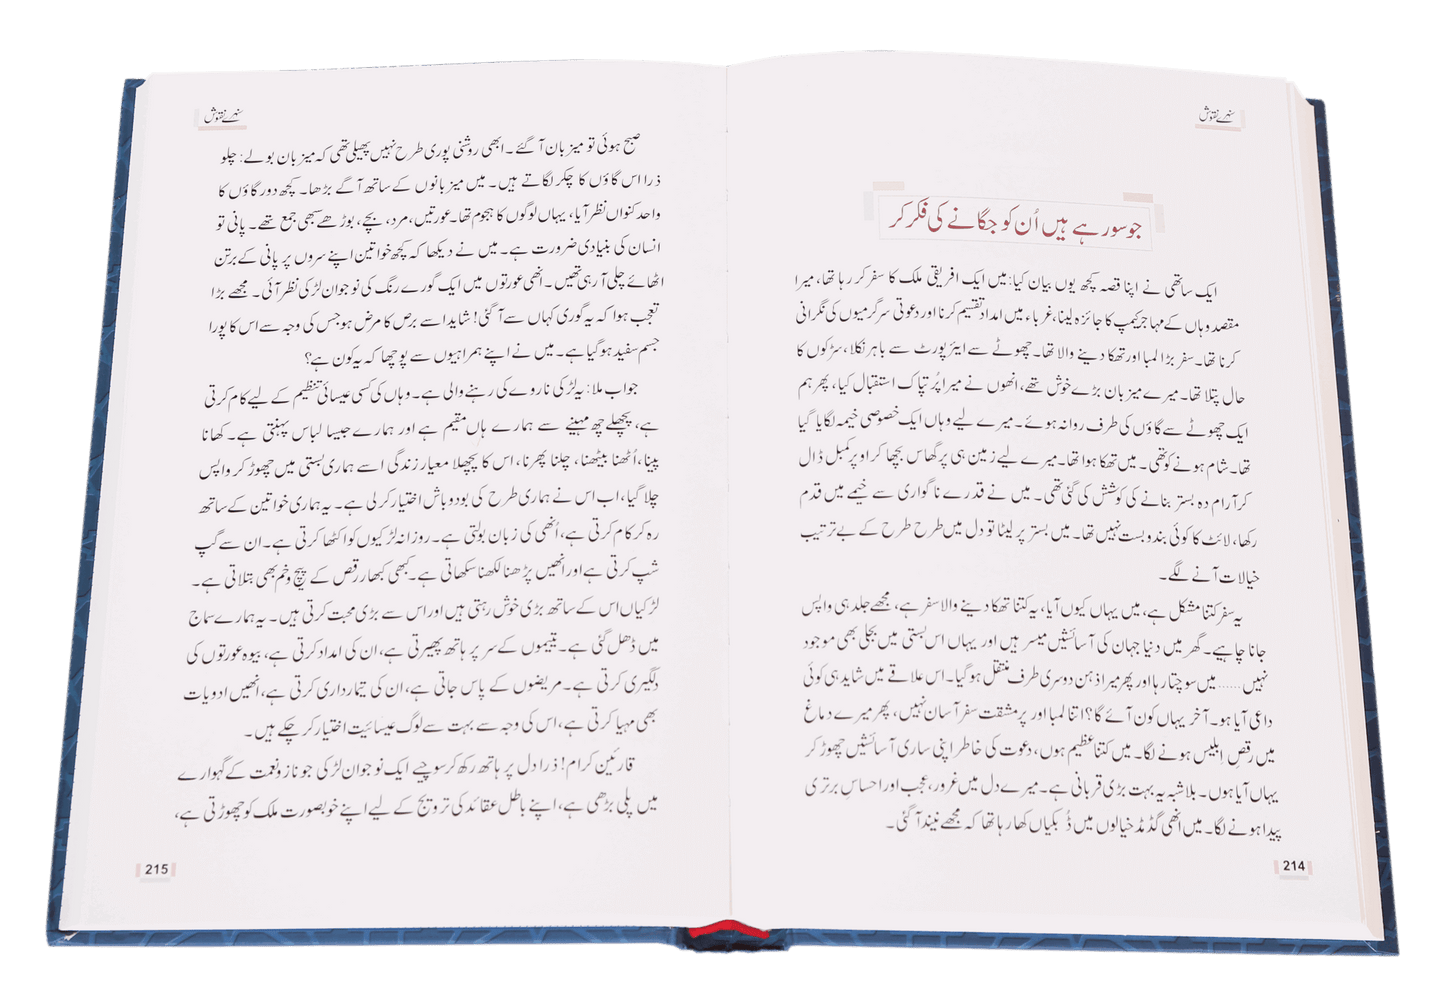 سنہرے نقوش
جو سو رہے ہیں اُن کو جگانے کی فکر کر
ایک ساتھی نے اپنا قصہ کچھ یوں بیان کیا: میں ایک افریقی ملک کا سفر کر رہا تھا، میرا
مقصد وہاں کے مہاجر کیمپ کا جائزہ لینا، غرباء میں امداد تقسیم کرنا اور دعوتی سرگرمیوں کی نگرانی
کرنا تھا۔ سفر بڑا لمبا اور تھکا دینے والا تھا۔ چھوٹے سے ایئرپورٹ سے باہر نکلا، سڑکوں کا
حال پتلا تھا۔ میرے میزبان بڑے خوش تھے، انھوں نے میرا پُرتپاک استقبال کیا، پھر ہم
ایک چھوٹے سے گاؤں کی طرف روانہ ہوئے۔ میرے لیے وہاں ایک خصوصی خیمہ لگایا گیا
تھا۔ شام ہونے کو تھی۔ میں تھکا ہوا تھا۔ میرے لیے زمین ہی پر گھاس بچھا کر اوپر کمبل ڈال
کر آرام دہ بستر بنانے کی کوشش کی گئی تھی۔ میں نے قدرے ناگواری سے خیمے میں قدم
رکھا، لائٹ کا کوئی بندوبست نہیں تھا۔ میں بستر پر لیٹا تو دل میں طرح طرح کے بے ترتیب
خیالات آنے لگے۔
یہ سفر کتنا مشکل ہے، میں یہاں کیوں آیا، یہ کتنا تھکا دینے والا سفر ہے، مجھے جلد ہی واپس
جانا چاہیے۔ گھر میں دنیا جہان کی آسائشیں میسر ہیں اور یہاں اس بستی میں بجلی بھی موجود
نہیں...... میں سوچتا رہا اور پھر میرا ذہن دوسری طرف منتقل ہو گیا۔ اس علاقے میں شاید ہی کوئی
داعی آیا ہو۔ آخر یہاں کون آئے گا؟ اتنا لمبا اور پر مشقت سفر آسان نہیں، پھر میرے دماغ
میں رقصِ ابلیس ہونے لگا۔ میں کتنا عظیم ہوں، دعوت کی خاطر اپنی ساری آسائشیں چھوڑ کر
یہاں آیا ہوں۔ بلاشبہ یہ بہت بڑی قربانی ہے۔ میرے دل میں غرور، عجب اور احساسِ برتری
پیدا ہونے لگا۔ میں انھی گڈمڈ خیالوں میں ڈبکیاں کھا رہا تھا کہ مجھے نیند آ گئی۔
214
سنہرے نقوش
صبح ہوئی تو میزبان آ گئے۔ ابھی روشنی پوری طرح نہیں پھیلی تھی کہ میزبان بولے: چلو
ذرا اس گاؤں کا چکر لگاتے ہیں۔ میں میزبانوں کے ساتھ آگے بڑھا۔ کچھ دور گاؤں کا
واحد کنواں نظر آیا، یہاں لوگوں کا ہجوم تھا۔ عورتیں، مرد، بچے، بوڑھے سبھی جمع تھے۔ پانی تو
انسان کی بنیادی ضرورت ہے۔ میں نے دیکھا کہ کچھ خواتین اپنے سروں پر پانی کے برتن
اٹھائے چلی آ رہی تھیں۔ انھی عورتوں میں ایک گورے رنگ کی نوجوان لڑکی نظر آئی۔ مجھے بڑا
تعجب ہوا کہ یہ گوری کہاں سے آ گئی! شاید اسے برص کا مرض ہو جس کی وجہ سے اس کا پورا
جسم سفید ہو گیا ہے۔ میں نے اپنے ہمراہیوں سے پوچھا کہ یہ کون ہے؟
جواب ملا: یہ لڑکی ناروے کی رہنے والی ہے۔ وہاں کی کسی عیسائی تنظیم کے لیے کام کرتی
ہے، پچھلے چھ مہینے سے ہمارے ہاں مقیم ہے اور ہمارے جیسا لباس پہنتی ہے۔ کھانا
پینا، اُٹھنا بیٹھنا، چلنا پھرنا، اس کا پچھلا معیار زندگی اسے ہماری بستی میں چھوڑ کر واپس
چلا گیا، اب اس نے ہماری طرح کی بود و باش اختیار کر لی ہے۔ یہ ہماری خواتین کے ساتھ
رہ کر کام کرتی ہے، اُنھی کی زبان بولتی ہے۔ روزانہ لڑکیوں کو اکٹھا کرتی ہے۔ ان سے گپ
شپ کرتی ہے اور انھیں پڑھنا لکھنا سکھاتی ہے۔ کبھی کبھار رقص کے پیچ و خم بھی بتلاتی ہے۔
لڑکیاں اس کے ساتھ بڑی خوش رہتی ہیں اور اس سے بڑی محبت کرتی ہیں۔ یہ ہمارے سماج
میں ڈھل گئی ہے۔ یتیموں کے سر پر ہاتھ پھیرتی ہے، ان کی امداد کرتی ہے، بیوہ عورتوں کی
دلگیری کرتی ہے۔ مریضوں کے پاس جاتی ہے، ان کی تیمارداری کرتی ہے، انھیں ادویات
بھی مہیا کرتی ہے، اس کی وجہ سے بہت سے لوگ عیسائیت اختیار کر چکے ہیں۔
قارئین کرام! ذرا دل پر ہاتھ رکھ کر سوچیے ایک نوجوان لڑکی جو ناز و نعمت کے گہوارے
میں پلی بڑھی ہے، اپنے باطل عقائد کی ترویج کے لیے اپنے خوبصورت ملک کو چھوڑتی ہے،
215